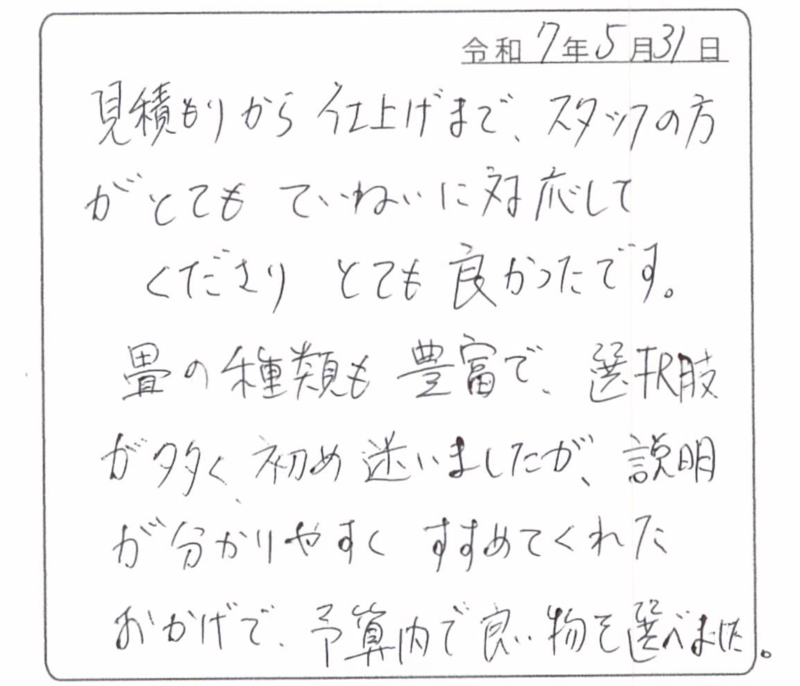 令和7年5月31日
見積もりから仕上げまで、スタッフの方
がとても ていねいに対応して
くださり とても良かったです。
畳の種類も豊富で、選択肢
が多く、初め迷いましたが、説明
が分かりやすく すすめてくれた
おかげで、予算内で良い物を選べました。